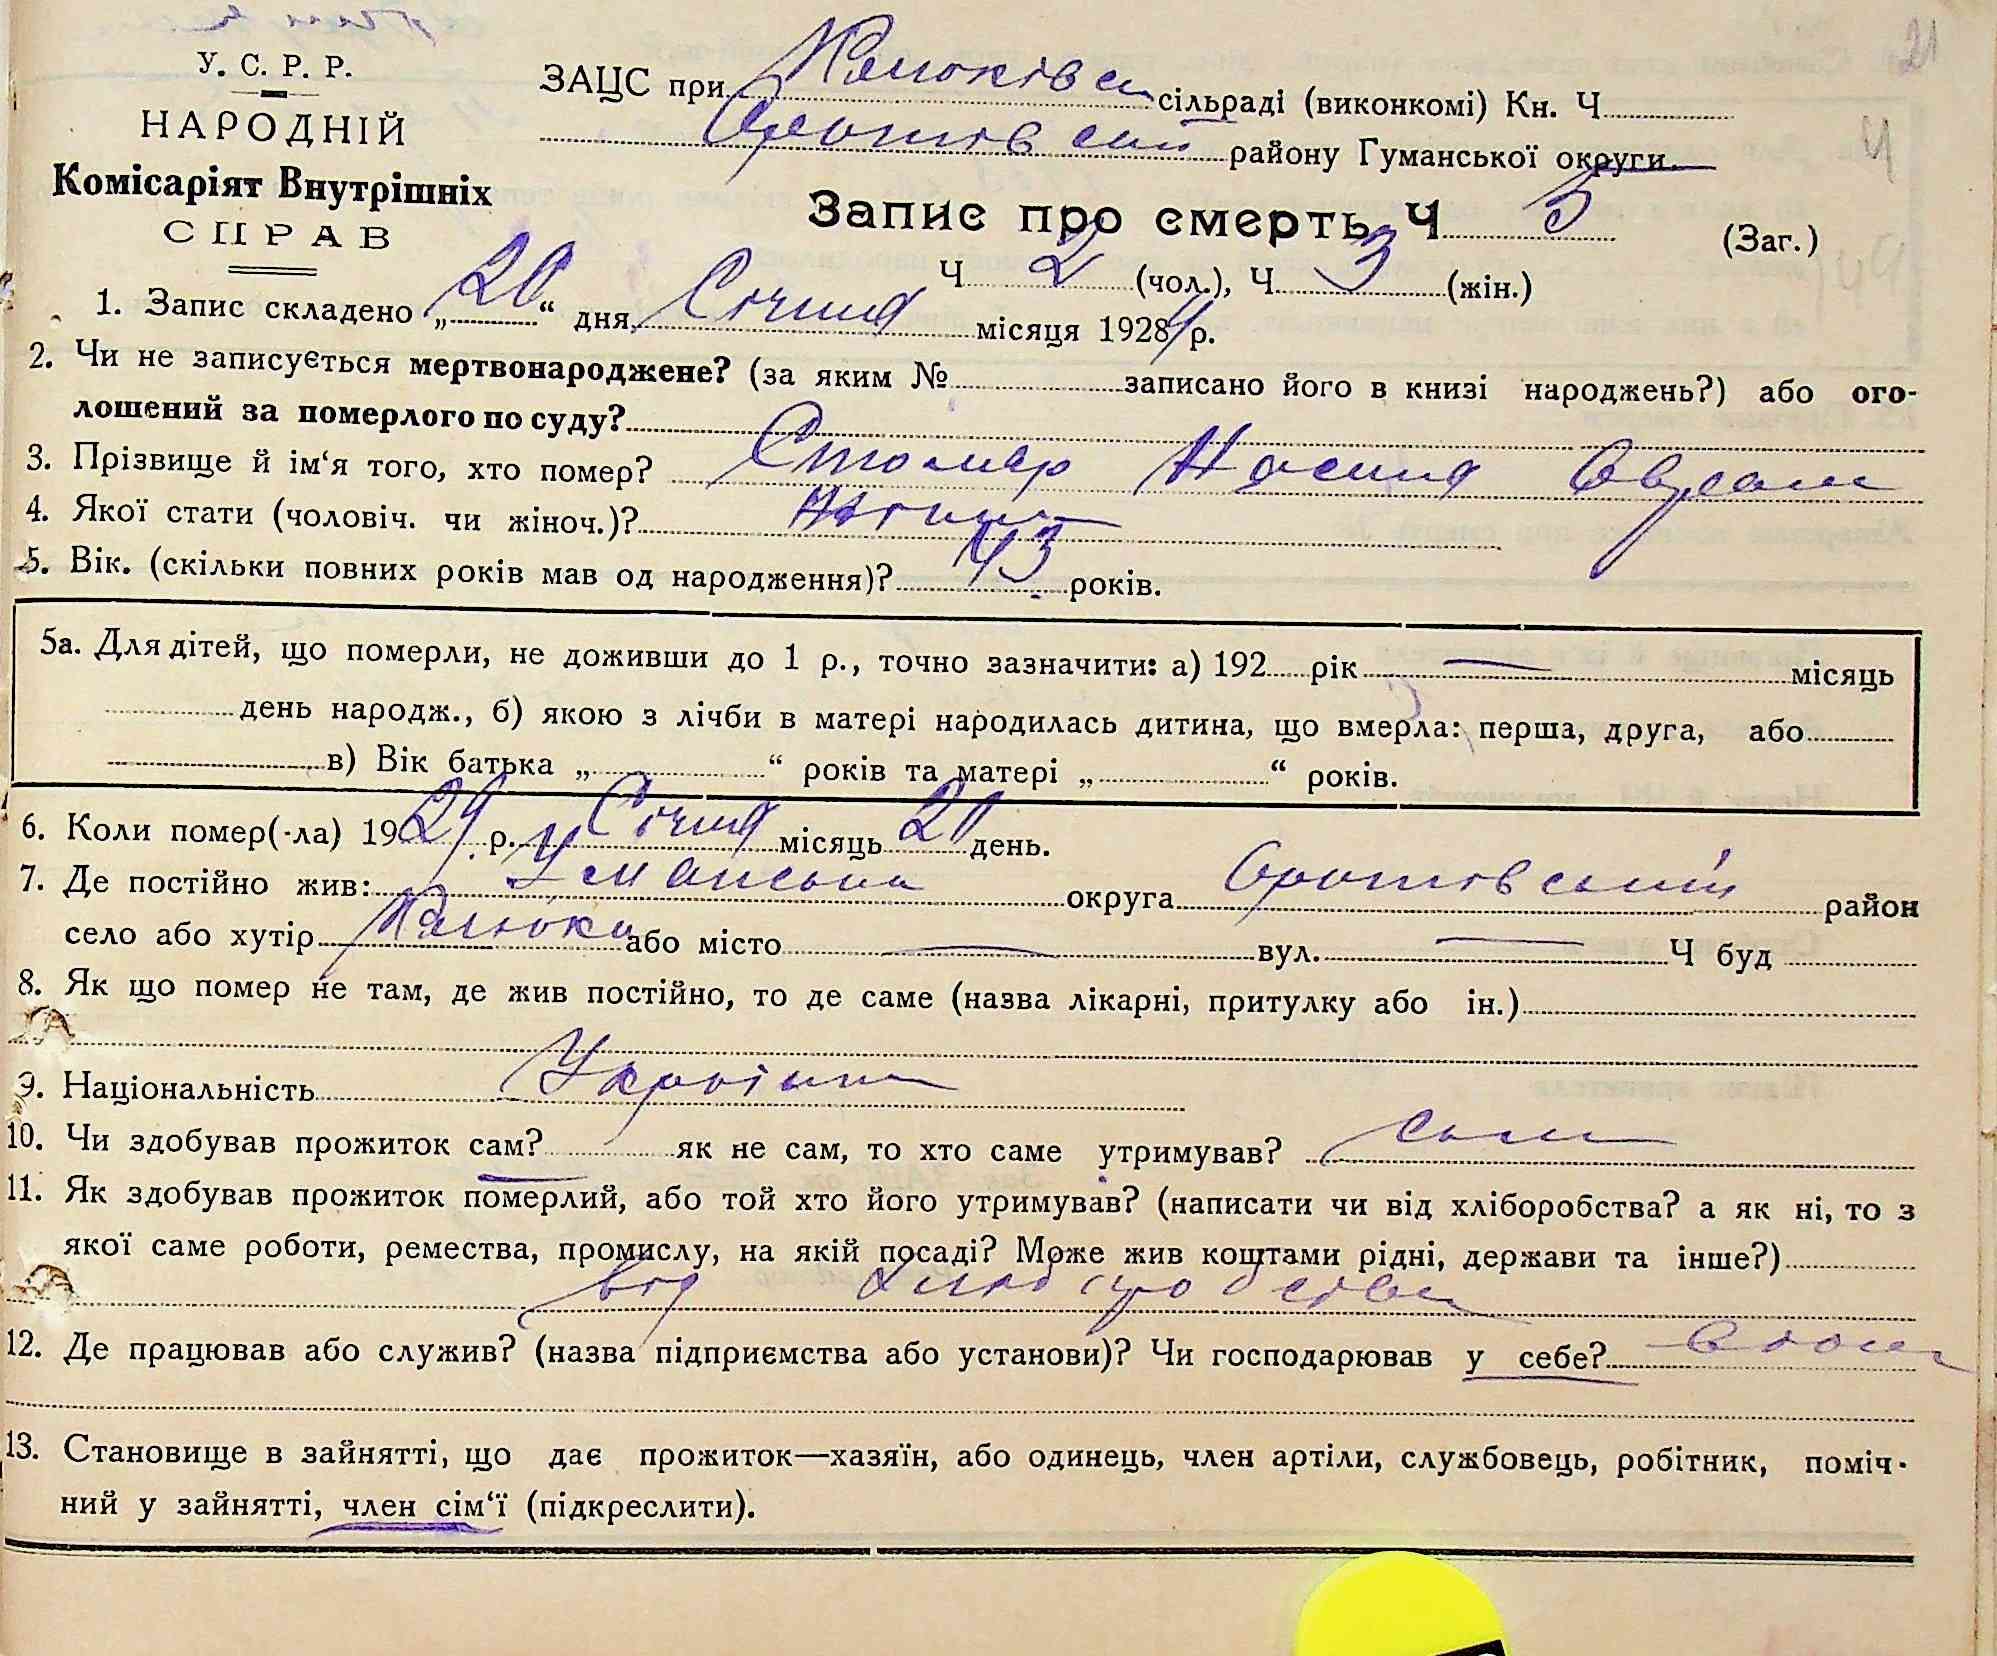 21
У. С. Р. Р.
НАРОДНІЙ
Комісаріят Внутрішніх
СПРАВ
ЗАЦС при сільраді (виконкомі) Кн. Ч
району Гуманської округи
Ч
Запис про смерть Ч 5 (Заг.)
Ч 2 (чол.), Ч 3 (жін.)
1. Запис складено „20“ дня Січня місяця 1928 р.
2. Чи не записується мертвонароджене? (за яким № записано його в книзі народжень?) або ого-
лошений за померлого по суду?
3. Прізвище й ім‘я того, хто помер? Столяр
4. Якої стати (чоловіч. чи жіноч.)?
5. Вік. (скільки повних років мав од народження)? 43 років.
5а. Для дітей, що померли, не доживши до 1 р., точно зазначити: а) 192 рік — місяць
день народж., б) якою з лічби в матері народилась дитина, що вмерла: перша, друга, або
в) Вік батька „ “ років та матері „ “ років.
6. Коли помер(-ла) 1929 р. Січня місяць 20 день.
7. Де постійно жив: Уманська округа Оратовський район
село або хутір або місто — вул. — Ч буд
8. Як що помер не там, де жив постійно, то де саме (назва лікарні, притулку або ін.)
9. Національність
10. Чи здобував прожиток сам? як не сам, то хто саме утримував? сам
11. Як здобував прожиток померлий, або той хто його утримував? (написати чи від хліборобства? а як ні, то з
якої саме роботи, ремества, промислу, на якій посаді? Може жив коштами рідні, держави та інше?)
від хліборобства
12. Де працював або служив? (назва підприємства або установи)? Чи господарював у себе?
13. Становище в зайнятті, що дає прожиток—хазяїн, або одинець, член артіли, службовець, робітник, поміч-
ний у зайнятті, член сім‘ї (підкреслити).